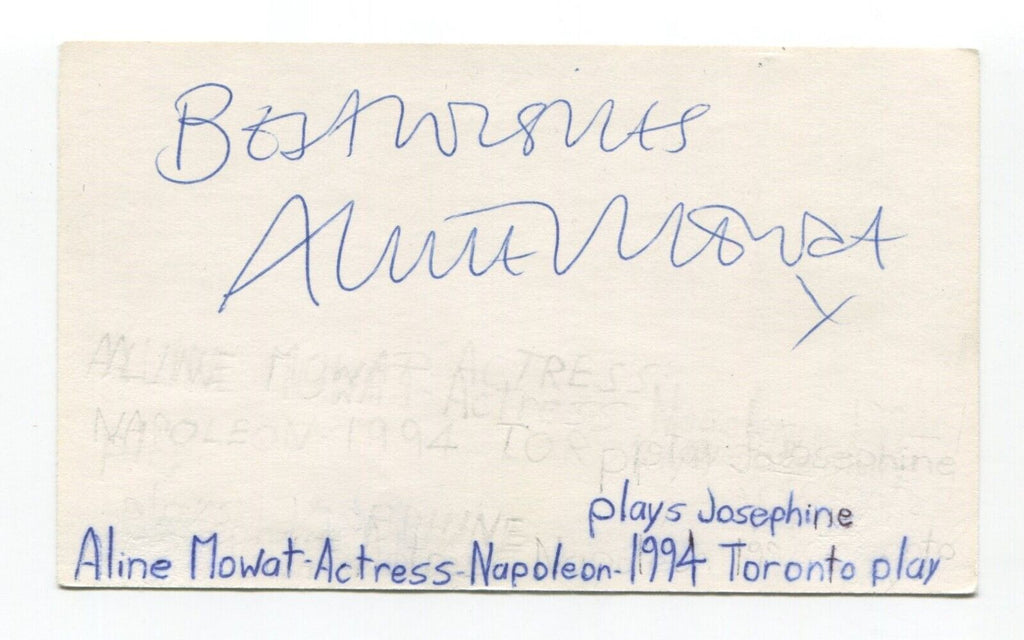 Best Wishes
Aline Mowat
X
ALINE MOWAT ACTRESS
NAPOLEON 1994 TOR
play Josephine
plays Josephine
Aline Mowat-Actress-Napoleon-1994 Toronto play